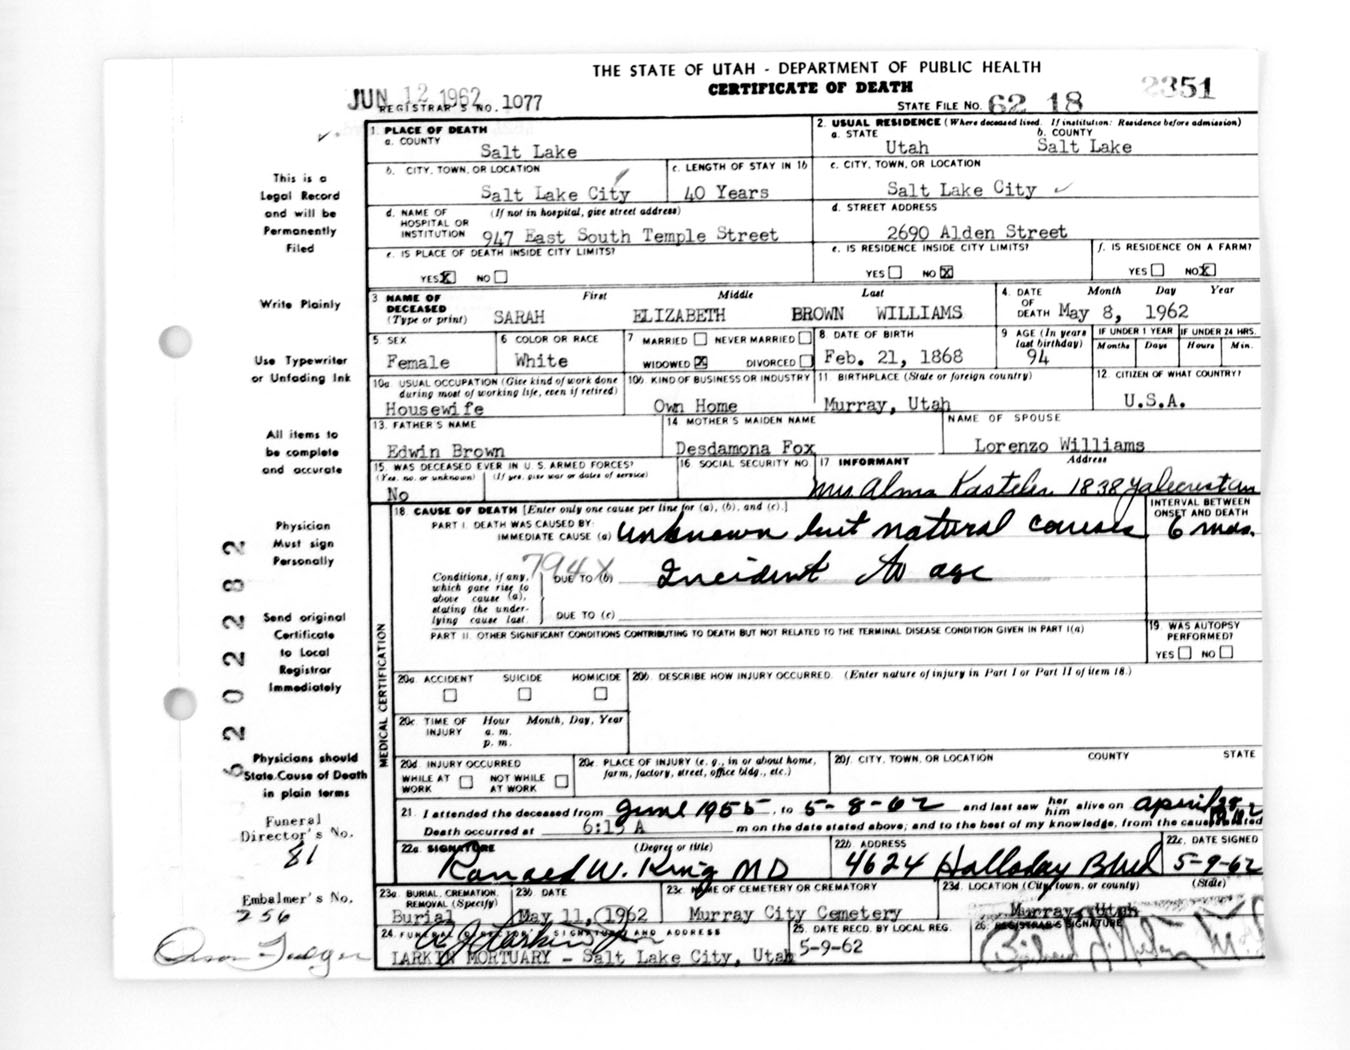 THE STATE OF UTAH - DEPARTMENT OF PUBLIC HEALTH
CERTIFICATE OF DEATH
JUN 12 1962
REGISTRAR'S NO. 1077
STATE FILE NO. 62 18
2351
This is a
Legal Record
and will be
Permanently
Filed
Write Plainly
Use Typewriter
or Unfading Ink
All items to
be complete
and accurate
Physician
Must sign
Personally
Send original
Certificate
to Local
Registrar
Immediately
Physicians should
State Cause of Death
in plain terms
Funeral
Director's No.
81
Embalmer's No.
256
1. PLACE OF DEATH
a. COUNTY
Salt Lake
2. USUAL RESIDENCE (Where deceased lived. If institution: Residence before admission)
a. STATE
Utah
b. COUNTY
Salt Lake
b. CITY, TOWN, OR LOCATION
Salt Lake City
c. LENGTH OF STAY IN 1b
40 Years
c. CITY, TOWN, OR LOCATION
Salt Lake City
d. NAME OF HOSPITAL OR INSTITUTION (If not in hospital, give street address)
947 East South Temple Street
d. STREET ADDRESS
2690 Alden Street
e. IS PLACE OF DEATH INSIDE CITY LIMITS?
YES X NO
e. IS RESIDENCE INSIDE CITY LIMITS?
YES NO X
f. IS RESIDENCE ON A FARM?
YES NO X
3 NAME OF DECEASED (Type or print)
First Middle Last
SARAH ELIZABETH BROWN WILLIAMS
4. DATE OF DEATH
Month Day Year
May 8, 1962
5. SEX
Female
6 COLOR OR RACE
White
7 MARRIED NEVER MARRIED
WIDOWED X DIVORCED
8 DATE OF BIRTH
Feb. 21, 1868
9 AGE (In years last birthday)
94
IF UNDER 1 YEAR
Months Days
IF UNDER 24 HRS.
Hours Min.
10a USUAL OCCUPATION (Give kind of work done during most of working life, even if retired)
Housewife
10b. KIND OF BUSINESS OR INDUSTRY
Own Home
11 BIRTHPLACE (State or foreign country)
Murray, Utah
12 CITIZEN OF WHAT COUNTRY?
U.S.A.
13. FATHER'S NAME
Edwin Brown
14 MOTHER'S MAIDEN NAME
Desdamona Fox
NAME OF SPOUSE
Lorenzo Williams
15. WAS DECEASED EVER IN U.S. ARMED FORCES?
(Yes, no, or unknown) (If yes, give war or dates of service)
No
16 SOCIAL SECURITY NO.
17 INFORMANT Address
Mrs Alma Kasteler 1838 Yalecrest
18 CAUSE OF DEATH [Enter only one cause per line for (a), (b), and (c).]
INTERVAL BETWEEN ONSET AND DEATH
PART I. DEATH WAS CAUSED BY:
IMMEDIATE CAUSE (a) Unknown but natural causes
6 mos.
794X
Conditions, if any, which gave rise to above cause (a), stating the underlying cause last.
DUE TO (b) Incident to age
DUE TO (c)
PART II. OTHER SIGNIFICANT CONDITIONS CONTRIBUTING TO DEATH BUT NOT RELATED TO THE TERMINAL DISEASE CONDITION GIVEN IN PART I(a)
19 WAS AUTOPSY PERFORMED?
YES NO
MEDICAL CERTIFICATION
20a. ACCIDENT SUICIDE HOMICIDE
20b. DESCRIBE HOW INJURY OCCURRED. (Enter nature of injury in Part I or Part II of item 18.)
20c TIME OF INJURY
Hour Month, Day, Year
a. m.
p. m.
20d INJURY OCCURRED
WHILE AT WORK NOT WHILE AT WORK
20e. PLACE OF INJURY (e. g., in or about home, farm, factory, street, office bldg., etc.)
20f. CITY, TOWN, OR LOCATION COUNTY STATE
21. I attended the deceased from June 1955, to 5-8-62 and last saw her him alive on April 28
Death occurred at 6:15 A m on the date stated above; and to the best of my knowledge, from the causes stated
22a. SIGNATURE (Degree or title)
Ranald W. King MD
22b ADDRESS
4624 Holladay Blvd
22c. DATE SIGNED
5-9-62
23a. BURIAL, CREMATION, REMOVAL (Specify)
Burial
23b DATE
May 11, 1962
23c NAME OF CEMETERY OR CREMATORY
Murray City Cemetery
23d. LOCATION (City, town, or county) (State)
Murray, Utah
24. FUNERAL DIRECTOR'S SIGNATURE AND ADDRESS
LARKIN MORTUARY - Salt Lake City, Utah
25. DATE RECD. BY LOCAL REG.
5-9-62
26. REGISTRAR'S SIGNATURE